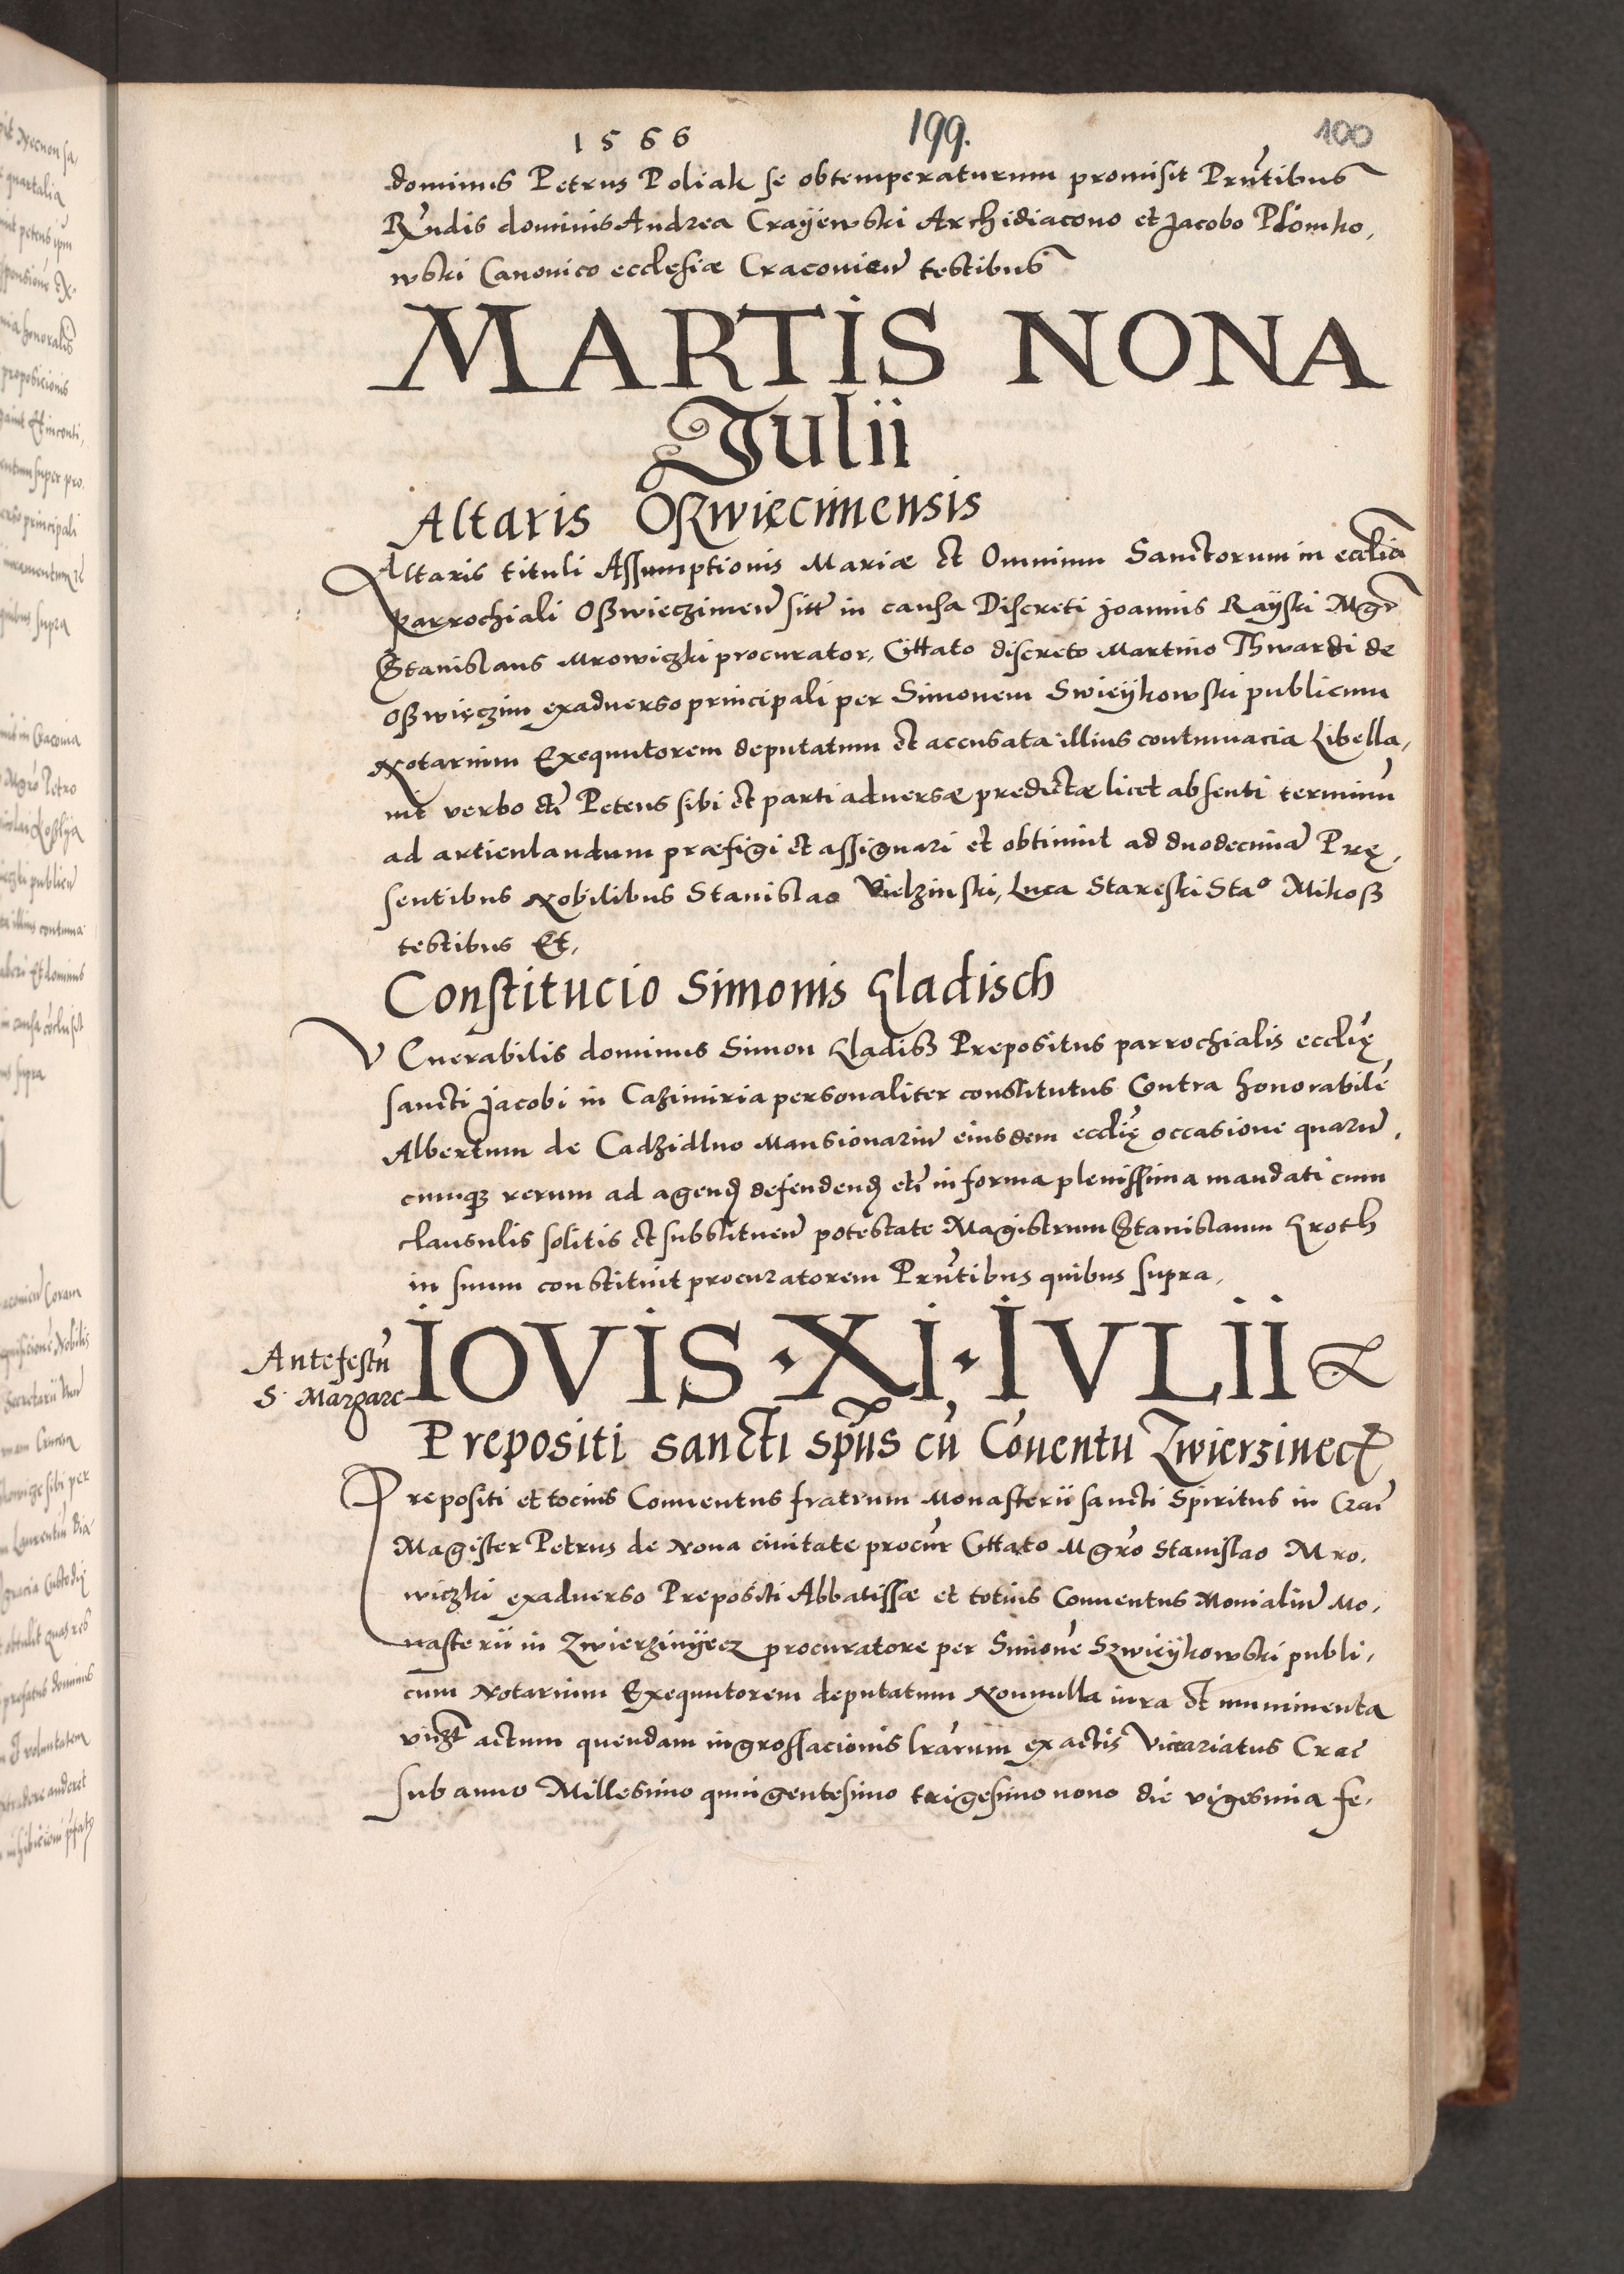 1566 199. 100
dominus Petrus Poliak se obtemperaturum promisit Prñtibus
Rñdis dominis Andrea Crayewski Archidiacono et Jacobo Plomko,
wski Canonico ecclesiæ Cracovieñ testibus
MARTIS NONA
Julii
Altaris Oßwięcimensis
Altaris tituli Assumptionis Mariæ et Omnium Sanctorum in eccłia
parrochiali Oßwieczimeñ sitt in causa Discreti Joannis Rayski Mgr
Stanislaus Mrowiczki procurator, Cittato discreto Martino Thwardi de
Oßwięczim exaduerso principali per Simonem Swieykowski publicum
Notarium Exequutorem deputatum et accusata illius contumacia Libella,
uit verbo etc̃ Petens sibi et parti aduersæ predictæ licet absenti terminũ
ad articulandum præfigi et assignari et obtinuit ad duodecimã Prę,
sentibus Nobilibus Stanislao Vielzinski, Luca Stareski Sta° Mikoß
testibus Et,
Constitucio Simonis Gladisch
Venerabilis dominus Simon Gladisz Prepositus parrochialis eccłię
sancti Jacobi in Cazimiria personaliter constitutus Contra honorabilẽ
Albertum de Cadzidlno Mansionariũ eiusdem eccłię occasione quarũ,
cumqz rerum ad agend defendend etc̃ in forma plenissima mandati cum
clausulis solitis et substitueñ potestate Magistrum Stanislaum Groth
in suum constituit procuratorem Prñtibus quibus supra,
Antefestũ
S. Margare
IOVIS·XI·IVLII
Prepositi sancti spũs cũ Cõuentu Zwierzinec
Prepositi et tocius Conuentus fratrum Monasterii sancti Spiritus in Crac̃
Magister Petrus de Noua ciuitate procũr Cittato Mgrõ Stanislao Mro,
wiczki exaduerso Prepositi Abbatissæ et totius Conuentus Monialiũ Mo,
nasterii in Zwierzinyecz procuratore per Simonẽ Szwieykowski publi,
cum Notarium Exequutorem deputatum Nonnulla iura et munimenta
vidzt actum quendam ingrossacionis lrãrum ex actis Vicariatus Crac̃
sub anno Millesimo quingentesimo trigesimo nono die vigesima fe,